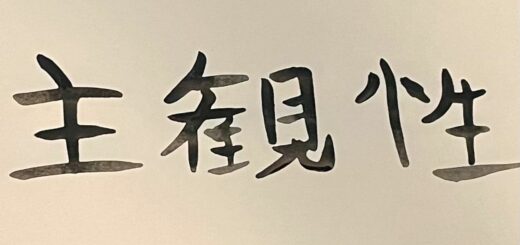 主観性